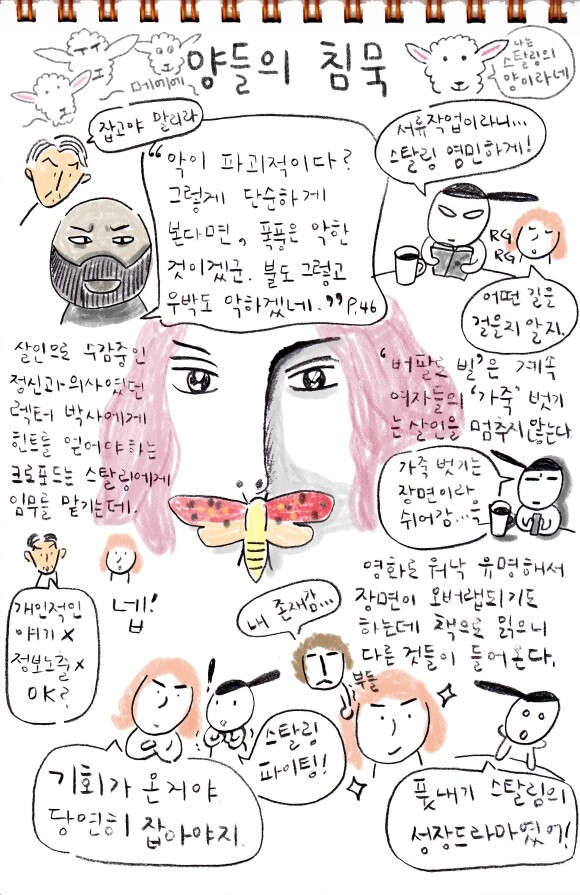 양들의 침묵
메에에
나는
스탈링의
양이라네
잡고야 말리라
"악이 파괴적이다?
그렇게 단순하게
본다면, 폭풍은 악한
것이겠군. 불도 그렇고
우박도 악하겠네." P.46
서류작업이라니...
스탈링 영민하게!
RG
RG
어떤 길을
걸을지 알지.
살인으로 수감중인
정신과의사였던
렉터 박사에게
힌트를 얻어야하는
크로포드는 스탈링에게
임무를 맡기는데.
'버팔로 빌'은 계속
여자들의 '가죽' 벗기
는 살인을 멈추지않는다.
가죽 벗기는
장면이라
쉬어감...윽
개인적인
얘기 X
정보노출 X
OK?
넵!
영화로 워낙 유명해서
장면이 오버랩되기도
하는데 책으로 읽으니
다른 것들이 들어온다.
내 존재감...
부들
스탈링
파이팅!
기회가 온거야
당연히 잡아야지.
풋내기 스탈링의
성장드라마였어!